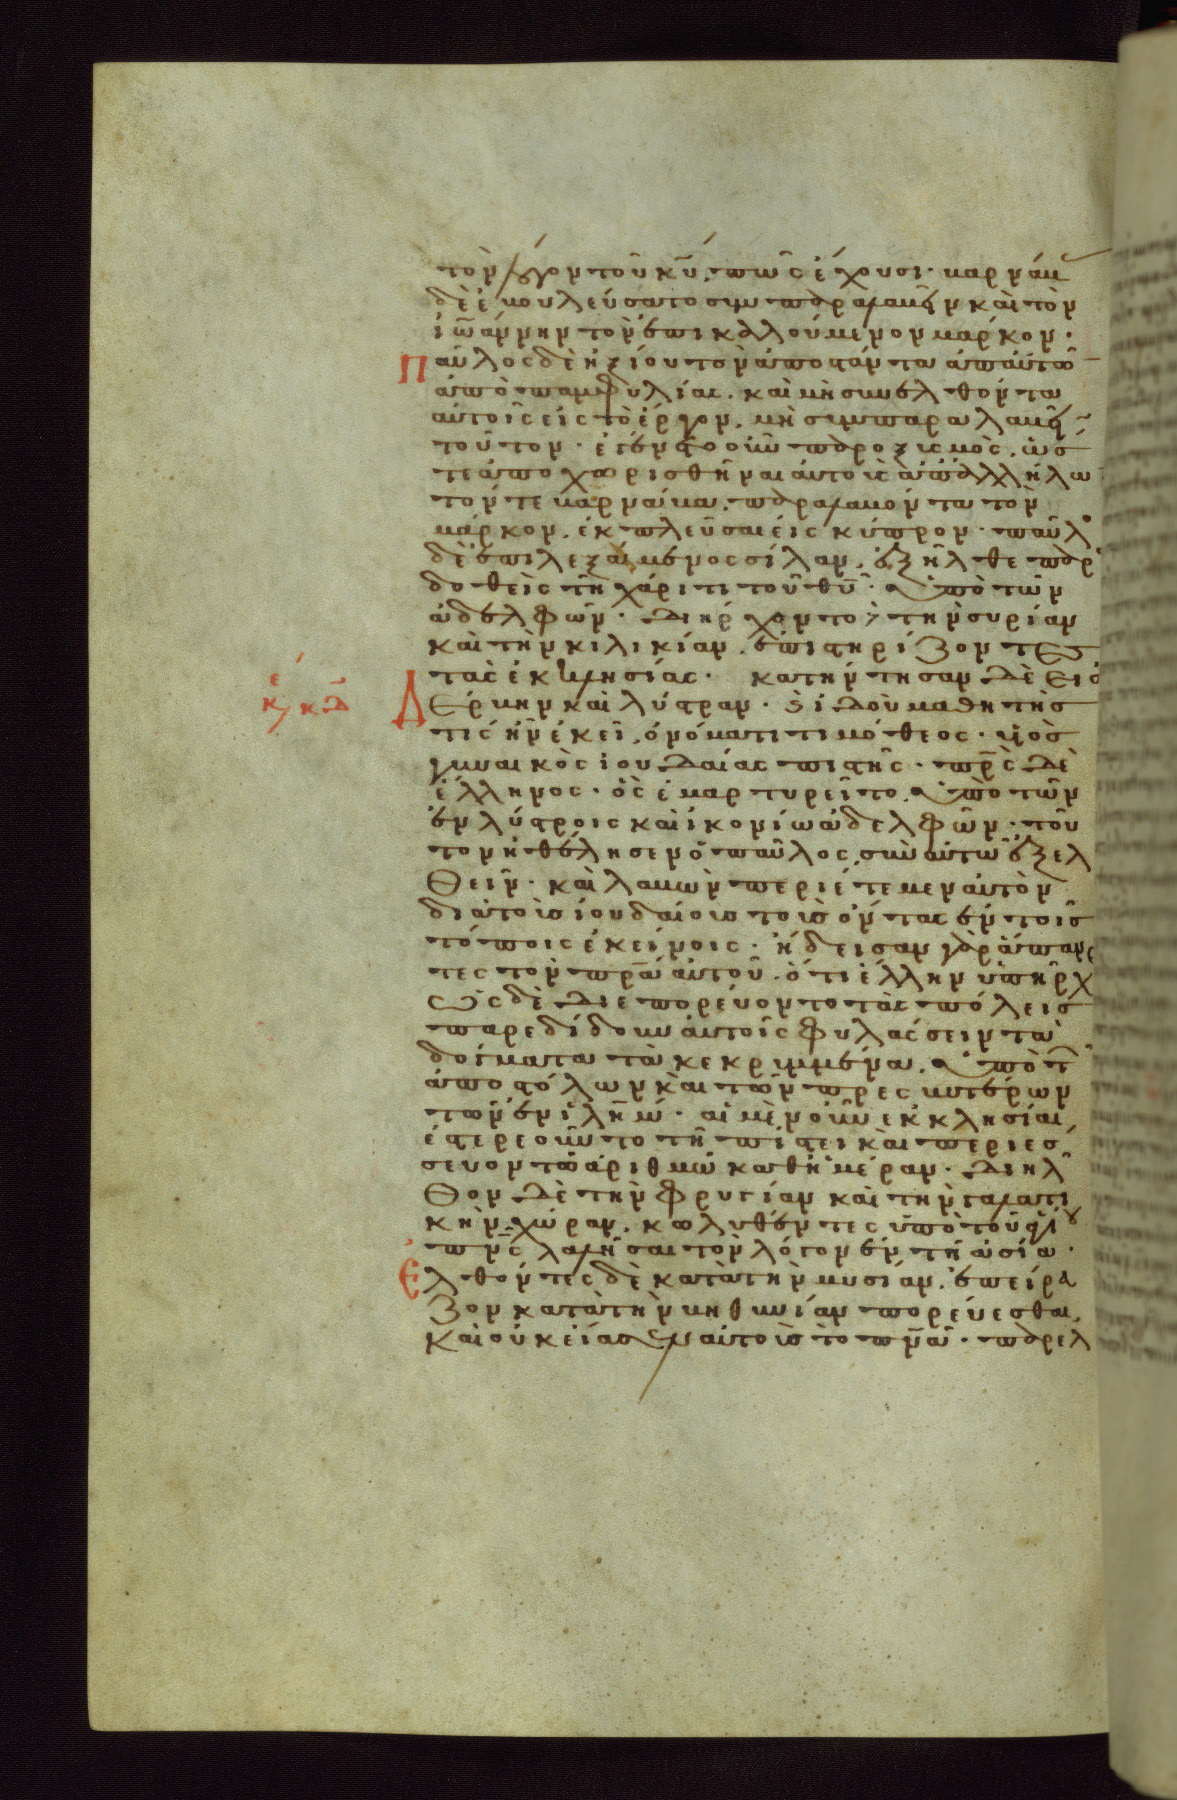 τὸν λόγον τοῦ κυ̅, πῶς ἔχουσι· βαρνάβ
δὲ ἐβουλεύσατο συμπαραλαβεῖν καὶ τὸν
ἰωάννην τὸν ἐπικαλούμενον μάρκον·
Παῦλος δὲ ἠξίου τὸν ἀποστάντα ἀπ αὐτῶ
ἀπὸ παμφυλίας, καὶ μὴ συνελθόντα
αὐτοῖς εἰς τὸ ἔργον, μὴ συμπαραλαβεῖ
τοῦτον· ἐγένετο οὖν παροξισμὸς, ὡσ
τε ἀποχωρισθῆναι αὐτοὺς ἀπαλλήλω
τόν τε βαρνάβα, παραλαβόντα τὸν
μάρκον, ἐκπλεῦσαι εἰς κύπρον· παῦλο
δὲ ἐπιλεξάμενος σίλαν, ἐξῆλθε παρα
δοθεὶς τῆ χάριτι τοῦ θυ̅· ὑπὸ τῶν
ἀδελφῶν· διήρχοντο δὲ τὴν συρίαν
καὶ τὴν κιλικίαν, ἐπιστηρίζοντες
τὰς ἐκκλησίας· κατήντησαν δὲ εἰς
Δέρβην καὶ λύστραν· καὶ ἰδοὺ μαθητὴς
τὶς ἦν ἐκεῖ, ὀνόματι τιμόθεος· υἱὸς
γυναικὸς ἰουδαίας πιστῆς· πρ̅ς δὲ
ἕλληνος· ὃς ἐμαρτυρεῖτο, ὑπὸ τῶν
ἐν λύστροις καὶ ἰκονίω ἀδελφῶν· τοῦ
τον ἠθέλησεν ὁ παῦλος, σὺν αὐτῶ ἐξελ
θεῖν· καὶ λαβὼν περιέτεμεν αὐτὸν
διὰ τοὺς ἰουδαίους τοὺς ὄντας ἐν τοῖς
τόποις ἐκείνοις· ἤδεισαν γὰρ ἅπαν
τες τὸν πρ̅α αὐτοῦ, ὅτι ἕλλην ὑπῆρχ
ὡς δὲ διεπορεύοντο τὰς πόλεις
παρεδίδουν αὐτοῖς φυλάσσειν τὰ
δόγματα τὰ κεκριμμένα, ὑπὸ τ
ἀποστόλων καὶ τῶν πρεσβυτέρων
τῶν ἐν ἰλη̅μ· αἱ μὲν οὖν ἐκκλησίαι
ἐστερεοῦντο τῆ πίστει καὶ περιεσ
σευον τῶ ἀριθμῶ καθημέραν· διῆλ
θον δὲ τὴν φρυγίαν καὶ τὴν γαλατι
κὴν χώραν, κωλυθέντες ὑπὸ τοῦ ἁγίου
πν̅ς λαλῆσαι τὸν λόγον ἐν τῆ ἀσία·
Ἐλθόντες δὲ κατὰ τὴν μυσίαν, ἐπείρα
ζον κατὰ τὴν βηθυνίαν πορεύεσθαι,
καὶ οὐκ εἴασεν αὐτοὺς τὸ πν̅α· παρελ